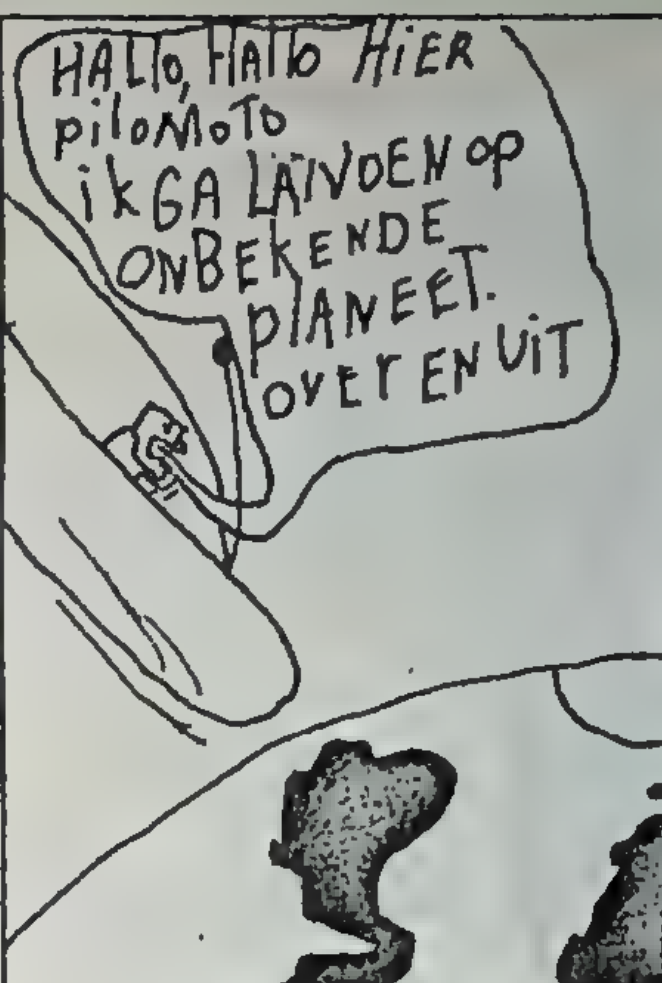 HALLO, HALLO HIER
piloMoTo
ik GA LANDEN op
ONBEKENDE
plANEET.
OVER EN UiT